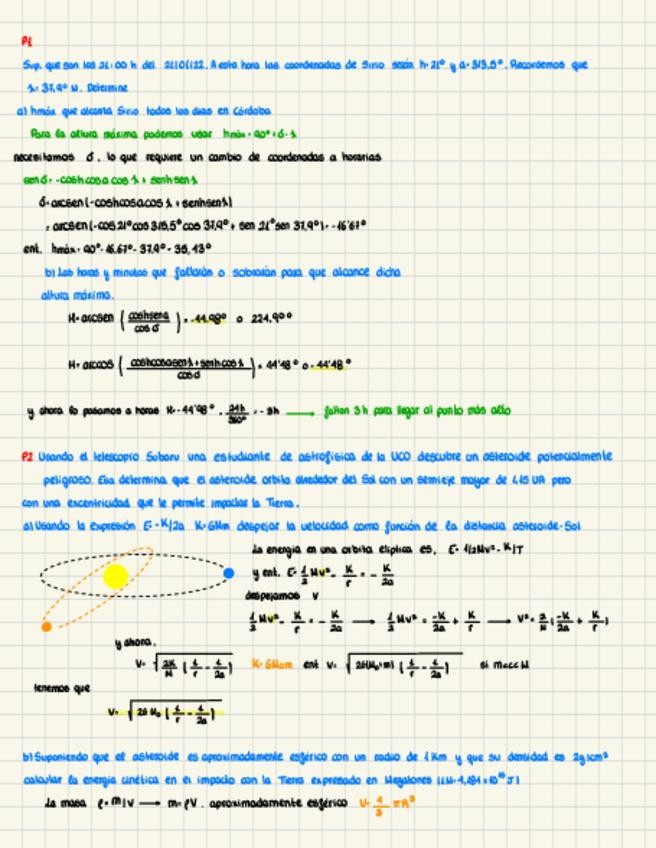 P1
Sup. que son las 21:00 h del 21/01/22. A esta hora las coordenadas de Sirio serán h=21° y a=315,5°. Recordemos que
λ=37,9° N. Determine
a) hmáx que alcanza Sirio todos los dias en Córdoba
Para la altura máxima podemos usar hmáx=90°+δ-λ
necesitamos δ, lo que requiere un cambio de coordenadas a horarias
senδ=-coshcosacosλ+senhsenλ
δ=arcsen(-coshcosacosλ+senhsenλ)
=arcsen(-cos21°cos315,5°cos37,9°+sen21°sen37,9°)=-16'67°
ent. hmáx=90°-16.67°-37,9°=35,43°
b) Las horas y minutos que faltarán o sobrarán para que alcance dicha
altura máxima.
H=arcsen (coshsena/cosδ)=-44.98° o 224,98°
H=arccos (coshcosasenλ+senhcosλ/cosδ)=44'98° o -44'98°
y ahora lo pasamos a horas H=-44'98°·24h/360°=-3h → faltan 3h para llegar al punto más alto
P2 Usando el telescopio Subaru una estudiante de astrofísica de la UCO descubre un asteroide potencialmente
peligroso. Ella determina que el asteroide orbita alrededor del Sol con un semieje mayor de 4,15 UA pero
con una excentricidad que le permite impactar la Tierra.
a) Usando la expresión E=-K/2a K=GMm despejar la velocidad como función de la distancia asteroide-Sol
La energia en una orbita eliptica es, E=1/2Mv²-K/r
y ent. E=1/2 Mv²-K/r=-K/2a
despejamos v
1/2 Mv²-K/r=-K/2a → 1/2 Mv²=-K/2a+K/r → v²=2/M(-K/2a+K/r)
y ahora,
v=√2K/M(1/r-1/2a) K=GM⊙m ent v=√2G(M⊙+m)(1/r-1/2a) si m<<M
tenemos que
v=√2GM⊙(1/r-1/2a)
b) Suponiendo que el asteroide es aproximadamente esférico con un radio de 1Km y que su densidad es 2g/cm³
calcular la energia cinética en el impacto con la Tierra expresado en Megatones (1M=4,184×10¹⁵J)
La masa ρ=m/V → m=ρV. aproximadamente esférico V=4/3 πR³